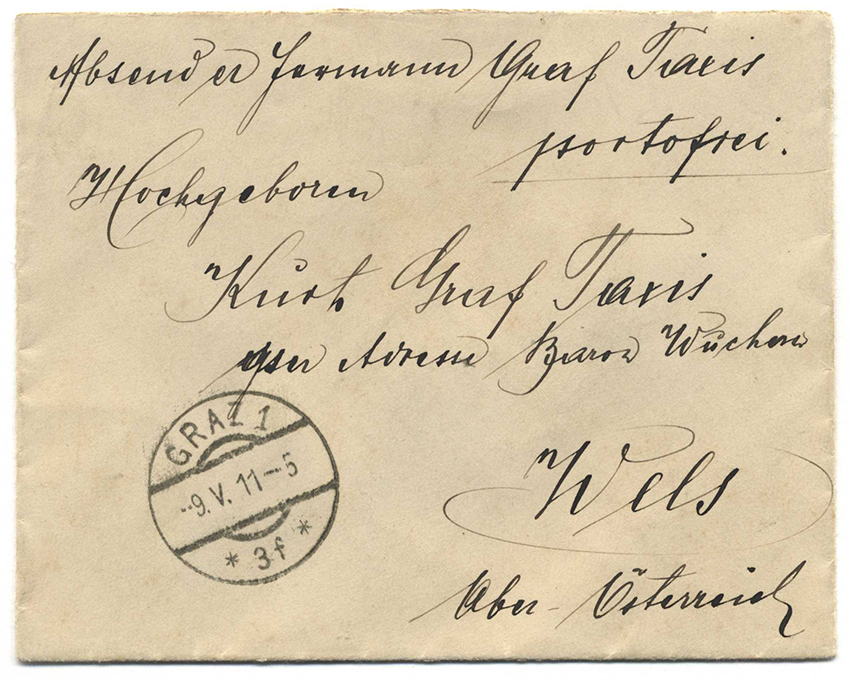 Absender Hermann Graf Taxis
portofrei.
Hochgeboren
Kurt Graf Taxis
per Adresse Baron Wucherer
Wels
Ober-Österreich
GRAZ 1
-9.V. 11-5
* 3f *